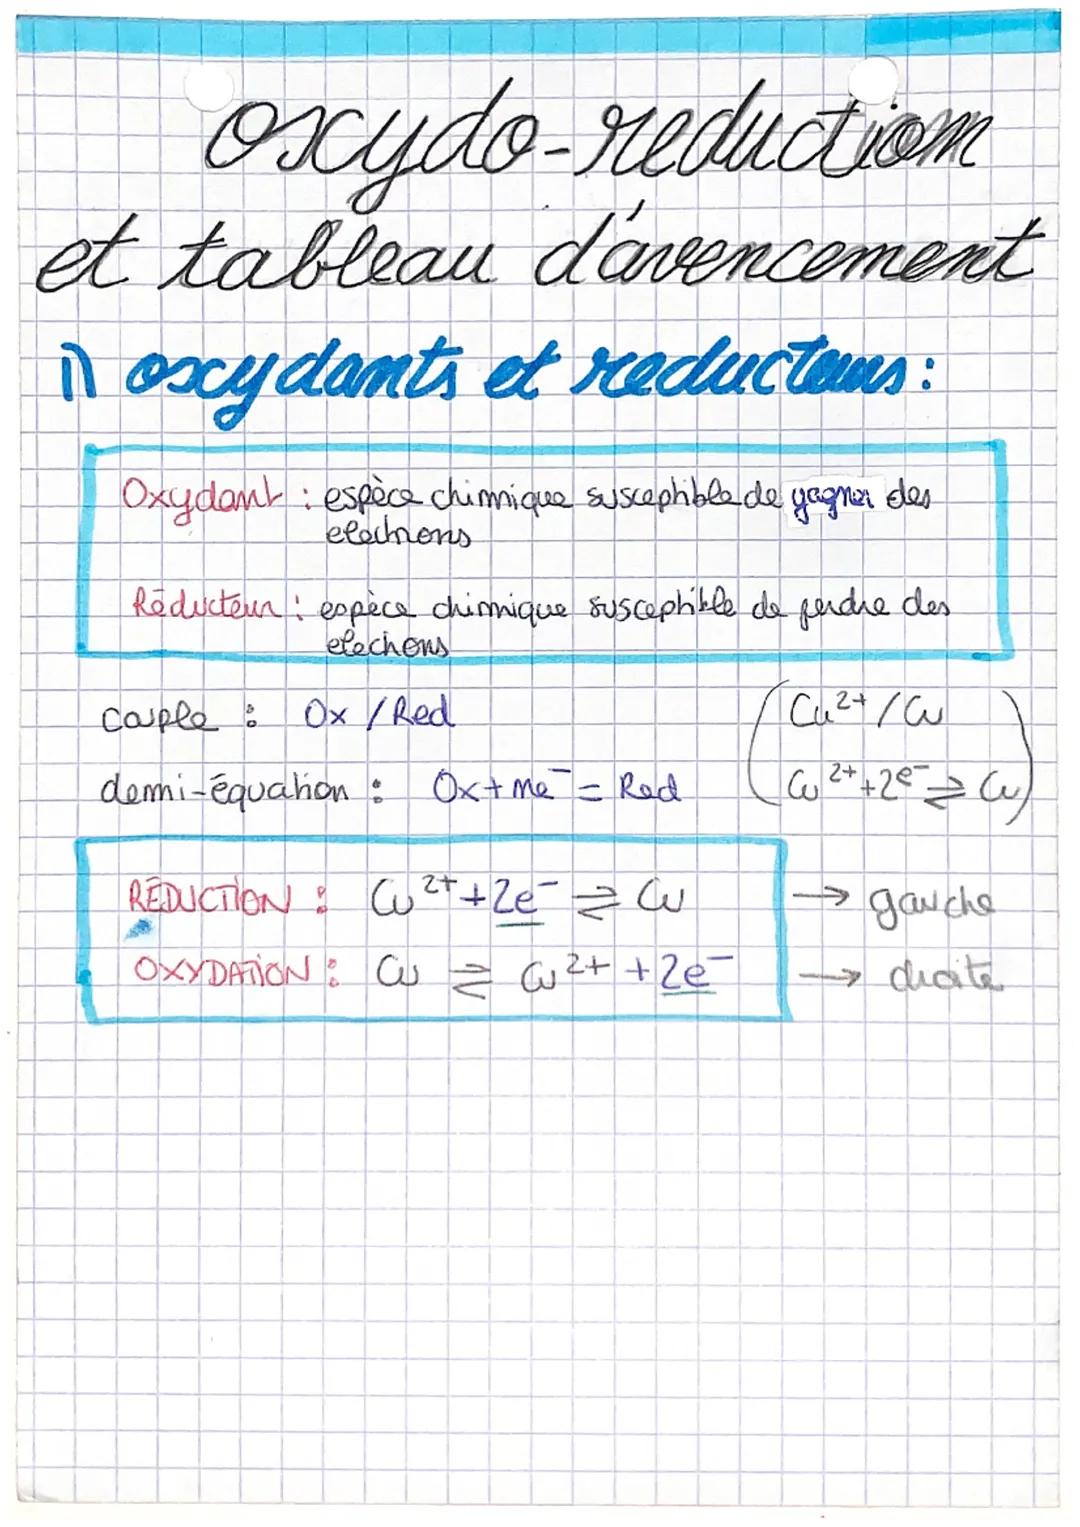 oxydo-reduction
et tableau d'avencement
1) oxydants et reducteurs :
Oxydant : espèce chimique susceptible de gagner des
electrons
Réducteur : espèce chimique susceptible de perdre des
electrons
couple : Ox / Red
(Cu²⁺ / Cu
demi-équation : Ox + ne⁻ = Red
Cu²⁺ + 2e⁻ ⇌ Cu)
RÉDUCTION : Cu²⁺ + 2e⁻ ⇌ Cu → gauche
OXYDATION : Cu ⇌ Cu²⁺ + 2e⁻ → droite